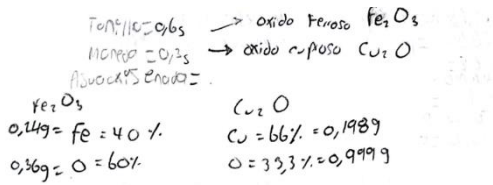 Tornillo=0,6s → oxido ferroso Fe₂O₃
Moneda =0,3s → oxido cuposo Cu₂O
Agua oxigenada=
Fe₂O₃
0,249= Fe = 40 %.
0,369= O = 60%
Cu₂ O
Cu = 66% = 0,1989
O = 33,3%=0,9999